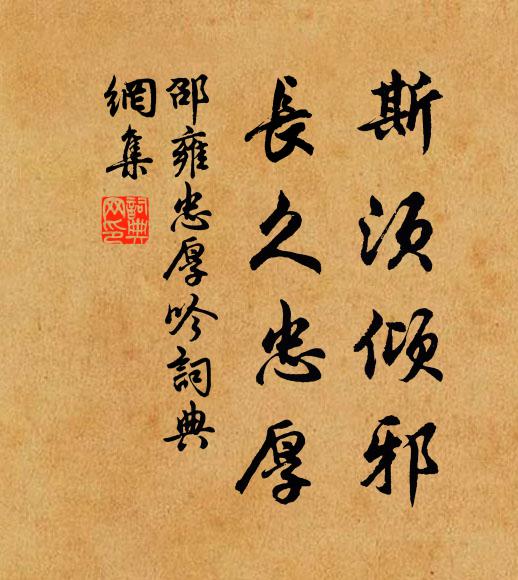 斯須傾邪
長久忠厚
邵雍忠厚吟詞典
網集
詞典網印